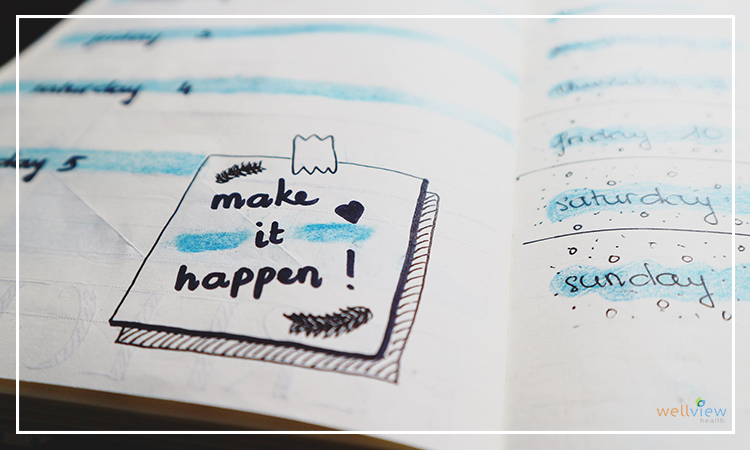 saturday 4
day 5
make
it
happen!
friday 10
saturday
sunday
wellview
health